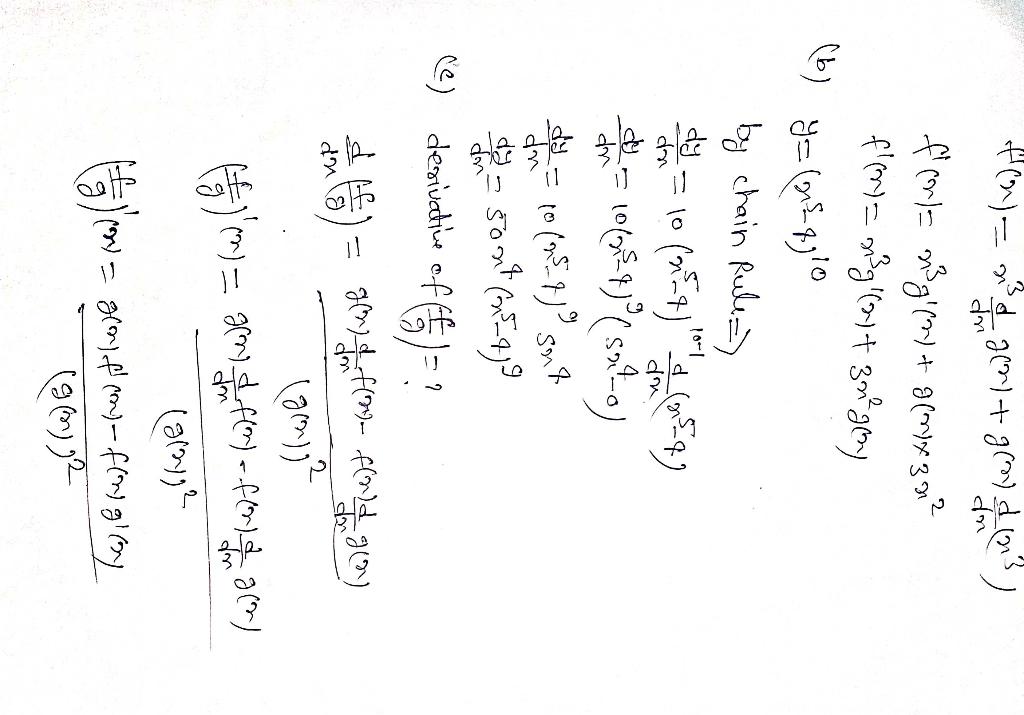 f'(x) = x³ d/dx g(x) + g(x) d/dx (x³)
f'(x) = x³g'(x) + g(x) × 3x²
f'(x) = x³g'(x) + 3x²g(x)
(b) y = (x⁵-4)¹⁰
by chain Rule ⇒
dy/dx = 10 (x⁵-4)¹⁰⁻¹ d/dx (x⁵-4)
dy/dx = 10(x⁵-4)⁹ (5x⁴-0)
dy/dx = 10(x⁵-4)⁹ 5x⁴
dy/dx = 50x⁴(x⁵-4)⁹
(c) derivative of (f/g) = ?
d/dx (f/g) = g(x) d/dx f(x) - f(x) d/dx g(x) / (g(x))²
(f/g)'(x) = g(x) d/dx f(x) - f(x) d/dx g(x) / (g(x))²
(f/g)'(x) = g(x) f'(x) - f(x) g'(x) / (g(x))²